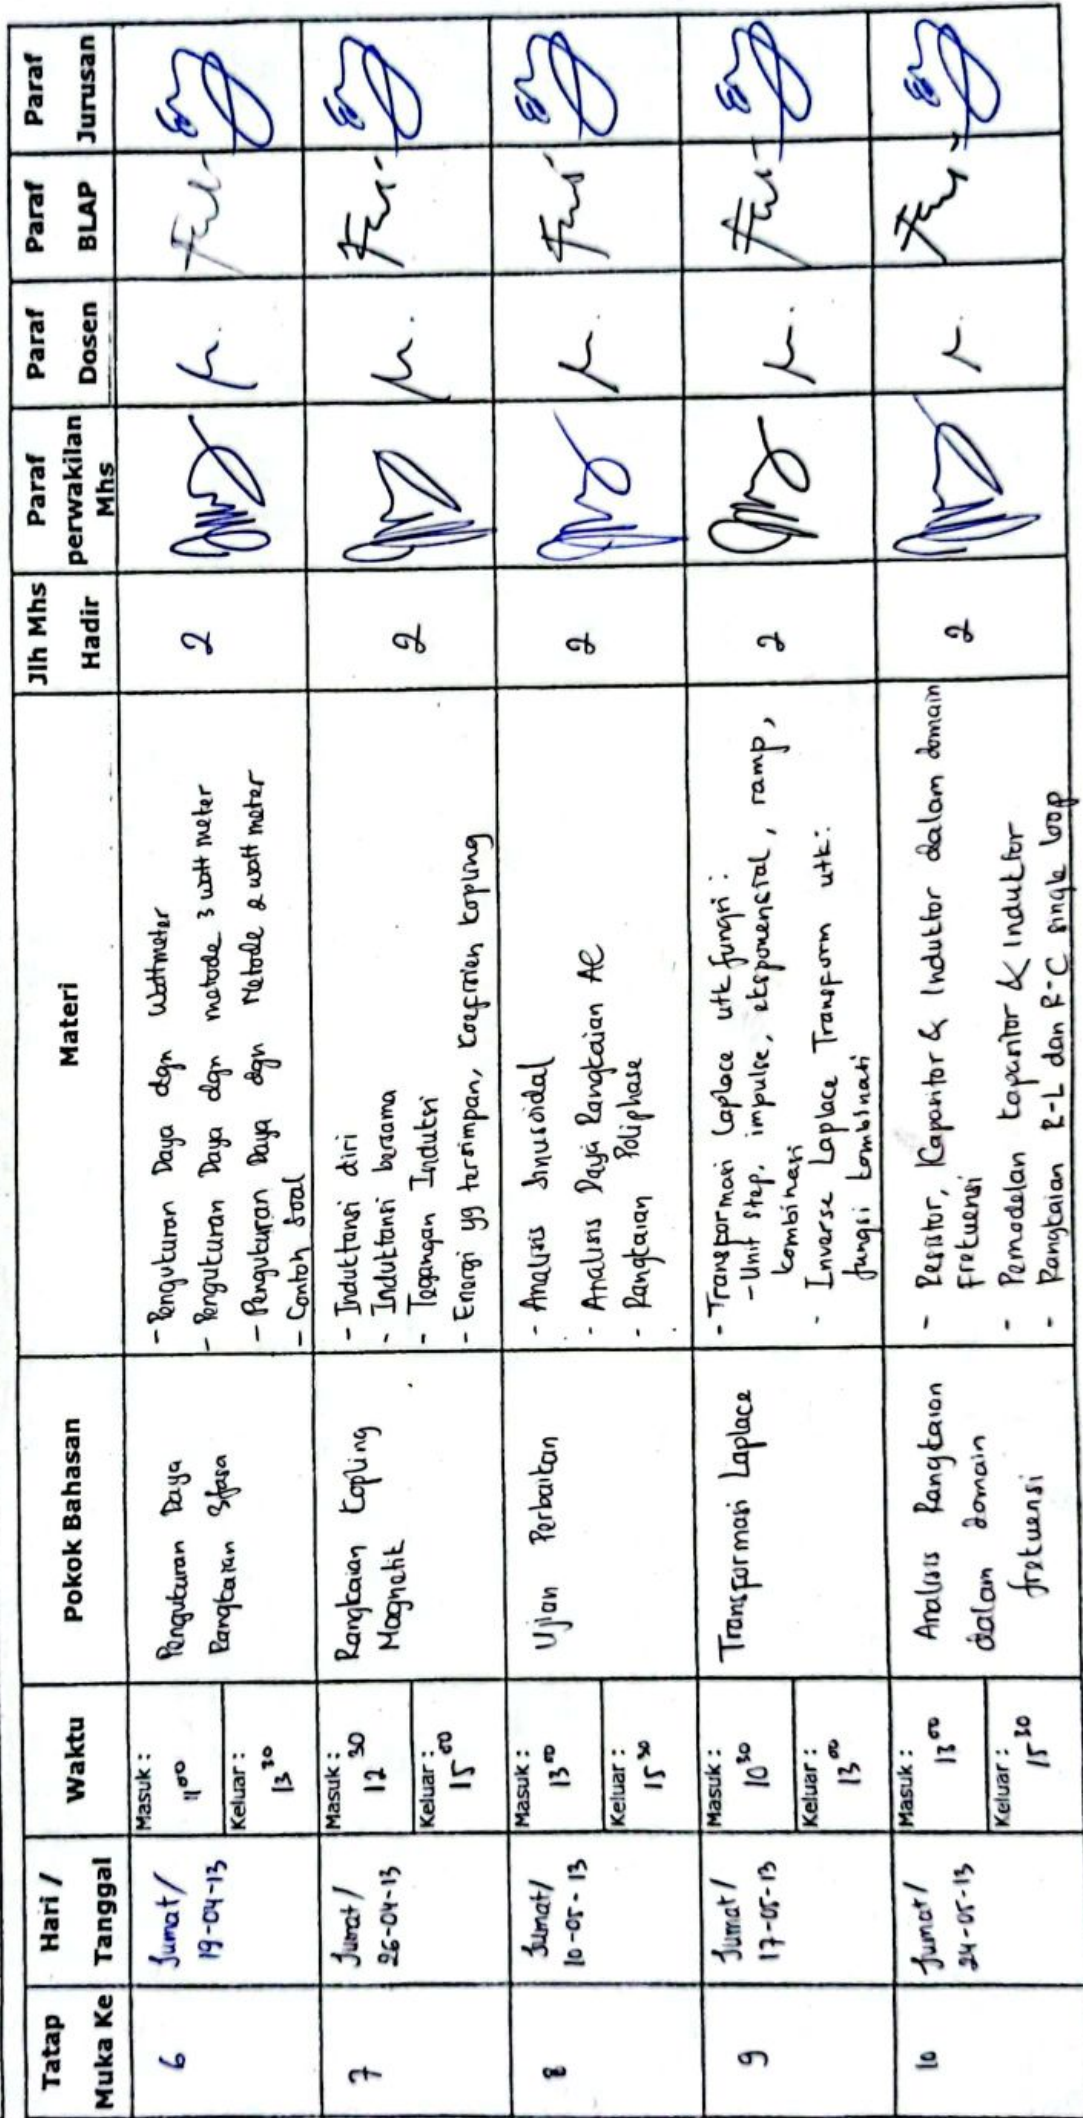 Tatap Muka Ke
Hari / Tanggal
Waktu
Pokok Bahasan
Materi
Jlh Mhs Hadir
Paraf perwakilan Mhs
Paraf Dosen
Paraf BLAP
Paraf Jurusan
6
Jumat/
19-04-13
Masuk :
11 00
Keluar :
13 30
Pengukuran Daya
Rangkaian 3fasa
- Pengukuran Daya dgn Wattmeter
- Pengukuran Daya dgn metode 3 watt meter
- Pengukuran Daya dgn Metode 2 watt meter
- Contoh Soal
2
7
Jumat/
26-04-13
Masuk :
12 30
Keluar :
15 00
Rangkaian Kopling
Magnetik
- Induktansi diri
- Induktansi bersama
- Tegangan Induksi
- Energi yg tersimpan, koefisien kopling
2
8
Jumat/
10-05-13
Masuk :
13 00
Keluar :
15 30
Ujian Perbaikan
- Analisis Sinusoidal
- Analisis Daya Rangkaian AC
- Rangkaian Poliphase
2
9
Jumat/
17-05-13
Masuk :
10 30
Keluar :
13 00
Transformasi Laplace
- Transformasi Laplace utk fungsi :
- Unit step, impulse, eksponensial, ramp,
kombinasi
- Inverse Laplace Transform utk:
fungsi kombinasi
2
10
Jumat/
24-05-13
Masuk :
13 00
Keluar :
15 30
Analisis Rangkaian
dalam domain
frekuensi
- Resistor, Kapasitor & Induktor dalam domain
Frekuensi
- Pemodelan kapasitor & Induktor
- Rangkaian R-L dan R-C single loop
2